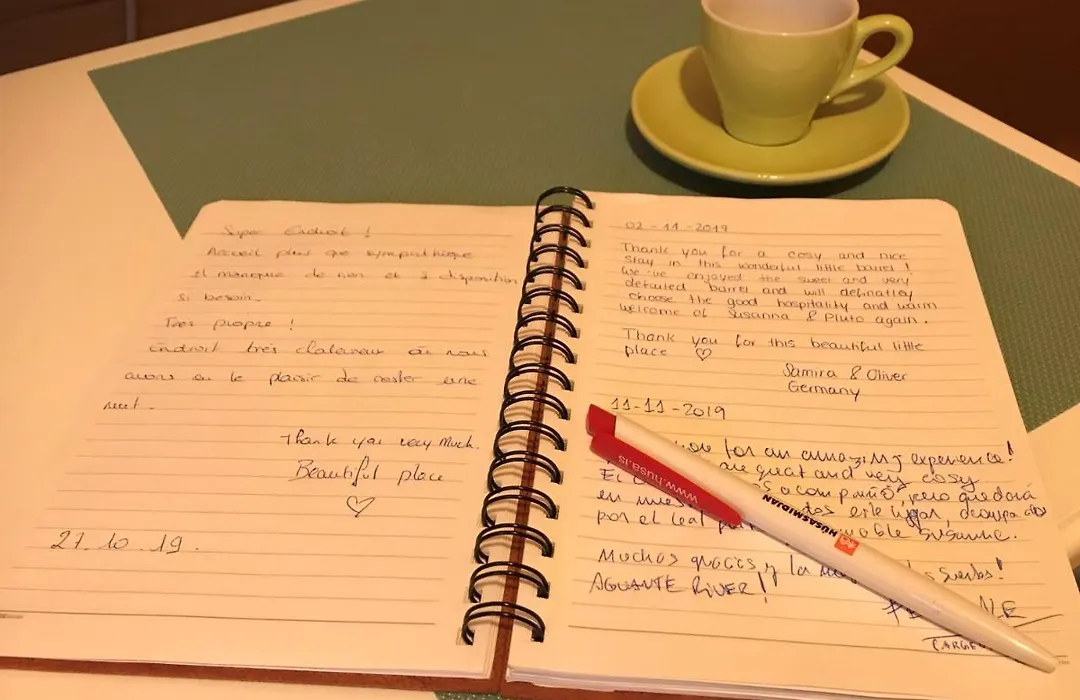 Super Endroit !
Accueil plus que sympathique
et manque de rien et à disposition
si besoin.
Tres propre !
Endroit très chaleureux où nous
avons eu le plaisir de rester une
nuit.
Thank you very much.
Beautiful place
♡
27.10.19.
02-11-2019
Thank you for a cosy and nice
stay in this wonderful little barrel!
We've enjoyed the sweet and very
detailed barrel and will definatley
choose the good hospitality and warm
welcome of Susanna & Pluto again.
Thank you for this beautiful little
place ♡
Samira & Oliver
Germany
11-11-2019
you for an amazing experience!
are great and very cosy
El acompañó, pero quedará
en este lugar, decorado
por el leal Susanne.
Muchas gracias y la suerte!
AGUANTE RIVER!
www.husa.is
HÚSASMIÐJAN